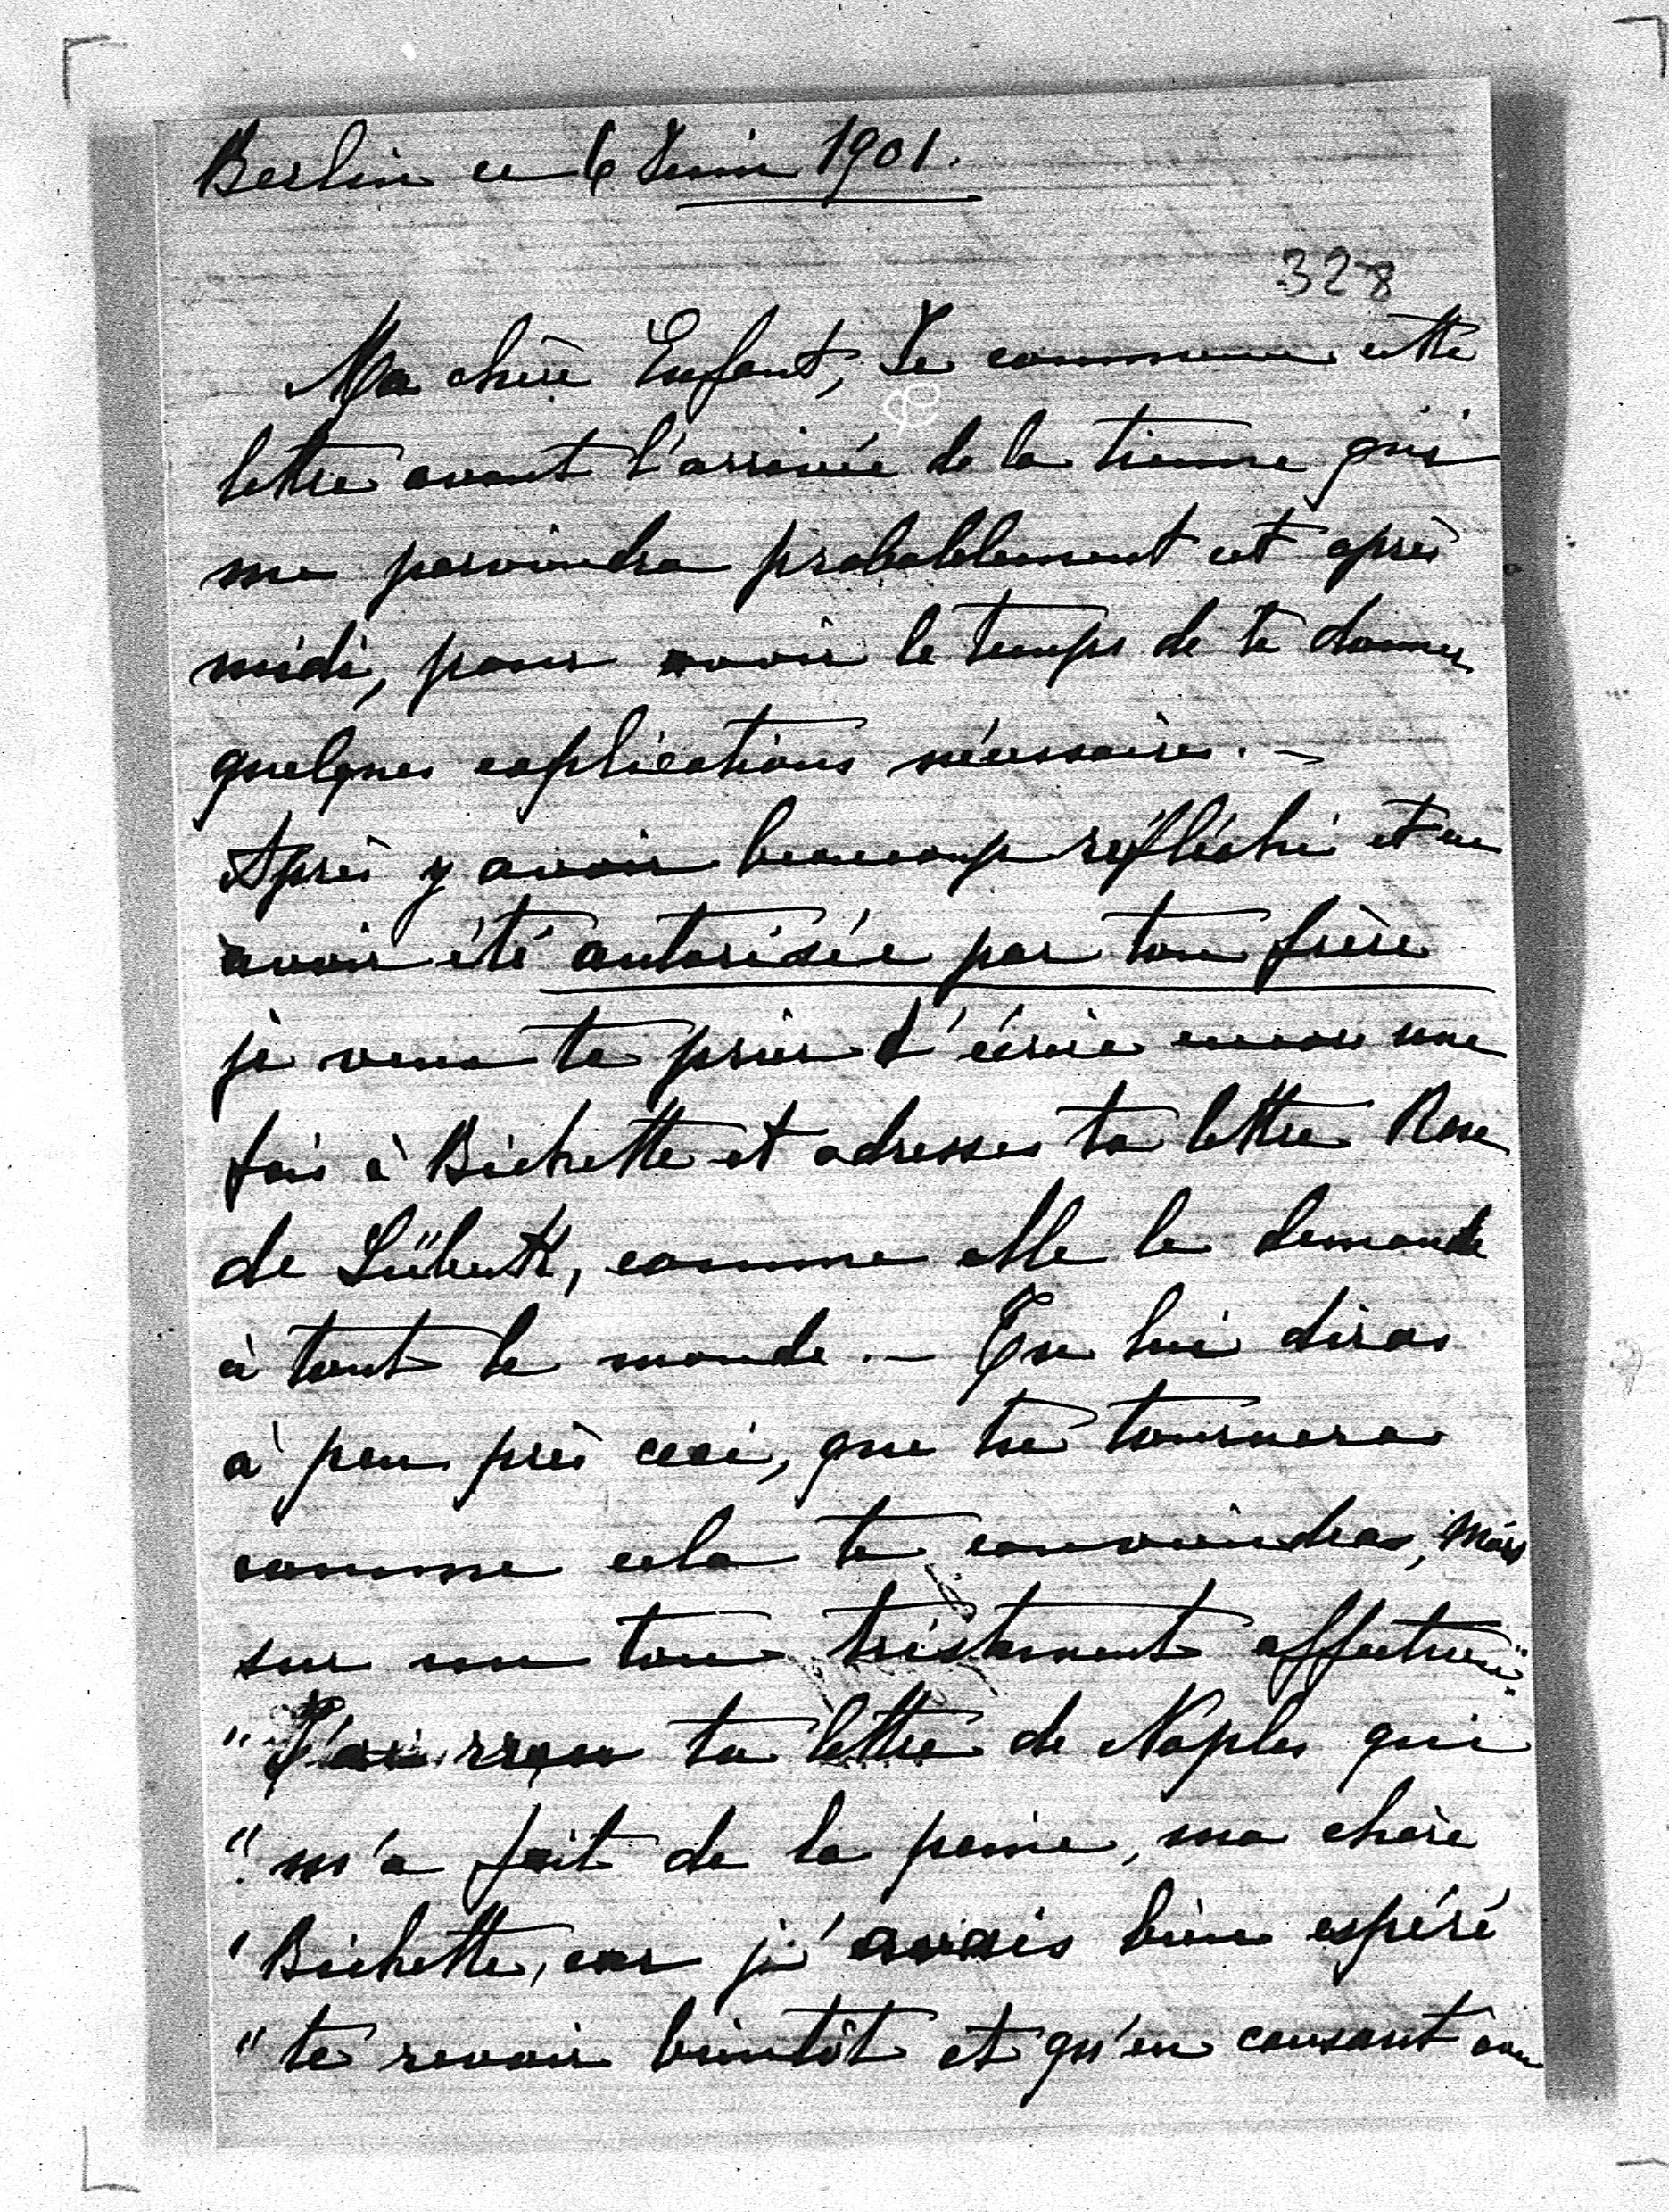 Berlin ce 6 Juin 1901.
328
Ma chère Enfant, Je commence cette
lettre avant l'arrivée de la tienne qui
me parviendra probablement cet après
midi, pour avoir le temps de te donner
quelques explications nécessaires. –
Après y avoir beaucoup réfléchi et en
avoir été autorisée par ton frère
je viens te prier d'écrire encore une
fois à Bichette et adresses ta lettre Rue
de Lübeck, comme elle le demande
à tout le monde. – Tu lui diras
à peu près ceci, que tu tourneras
comme cela te conviendras, mais
sur un ton tristement affectueux.
" J'ai reçu ta lettre de Naples qui
" m'a fait de la peine, ma chère
" Bichette, car j'avais bien espéré
" te revoir bientôt et qu'en causant